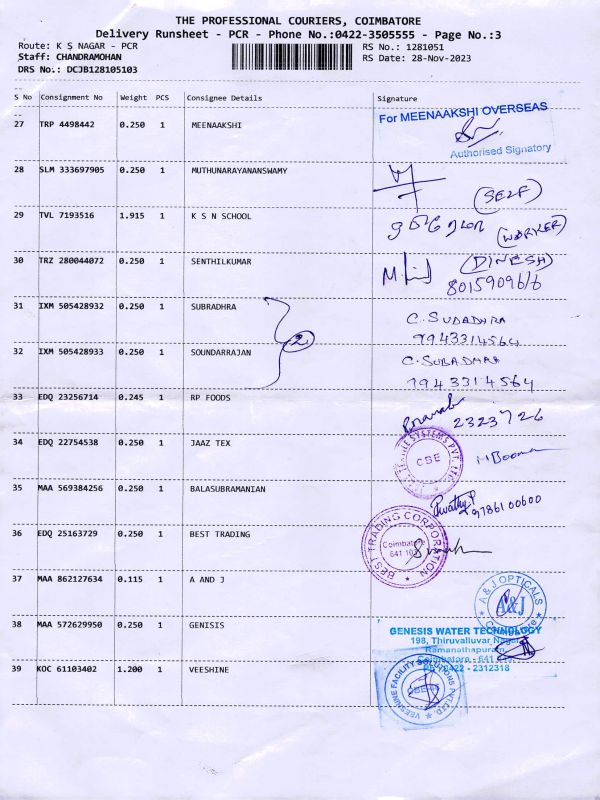 THE PROFESSIONAL COURIERS, COIMBATORE
Delivery Runsheet - PCR - Phone No.:0422-3505555 - Page No.:3
Route: K S NAGAR - PCR
RS No.: 1281051
Staff: CHANDRAMOHAN
RS Date: 28-Nov-2023
DRS No.: DCJB128105103
S No Consignment No Weight PCS Consignee Details Signature
27 TRP 4498442 0.250 1 MEENAAKSHI
For MEENAAKSHI OVERSEAS
Authorised Signatory
28 SLM 333697905 0.250 1 MUTHUNARAYANANSWAMY
(SELF)
29 TVL 7193516 1.915 1 K S N SCHOOL
(WORKER)
30 TRZ 280044072 0.250 1 SENTHILKUMAR
(DINESH)
8015909616
31 IXM 505428932 0.250 1 SUBRADHRA
C. SUBADHRA
9943314564
2
32 IXM 505428933 0.250 1 SOUNDARRAJAN
C. SUBADHRA
9943314564
33 EDQ 23256714 0.245 1 RP FOODS
2323726
34 EDQ 22754538 0.250 1 JAAZ TEX
SYSTEMS PVT. LTD.
CBE
35 MAA 569384256 0.250 1 BALASUBRAMANIAN
9786100600
36 EDQ 25163729 0.250 1 BEST TRADING
BEST TRADING CORPORATION
Coimbatore
641 103
37 MAA 862127634 0.115 1 A AND J
A & J OPTICALS
A&J
38 MAA 572629950 0.250 1 GENISIS
GENESIS WATER TECHNOLOGY
198, Thiruvalluvar Nagar
Ramanathapuram,
Coimbatore - 641
0422 - 2312318
39 KOC 61103402 1.200 1 VEESHINE
VEESHINE FACILITY SOLUTIONS PVT LTD.